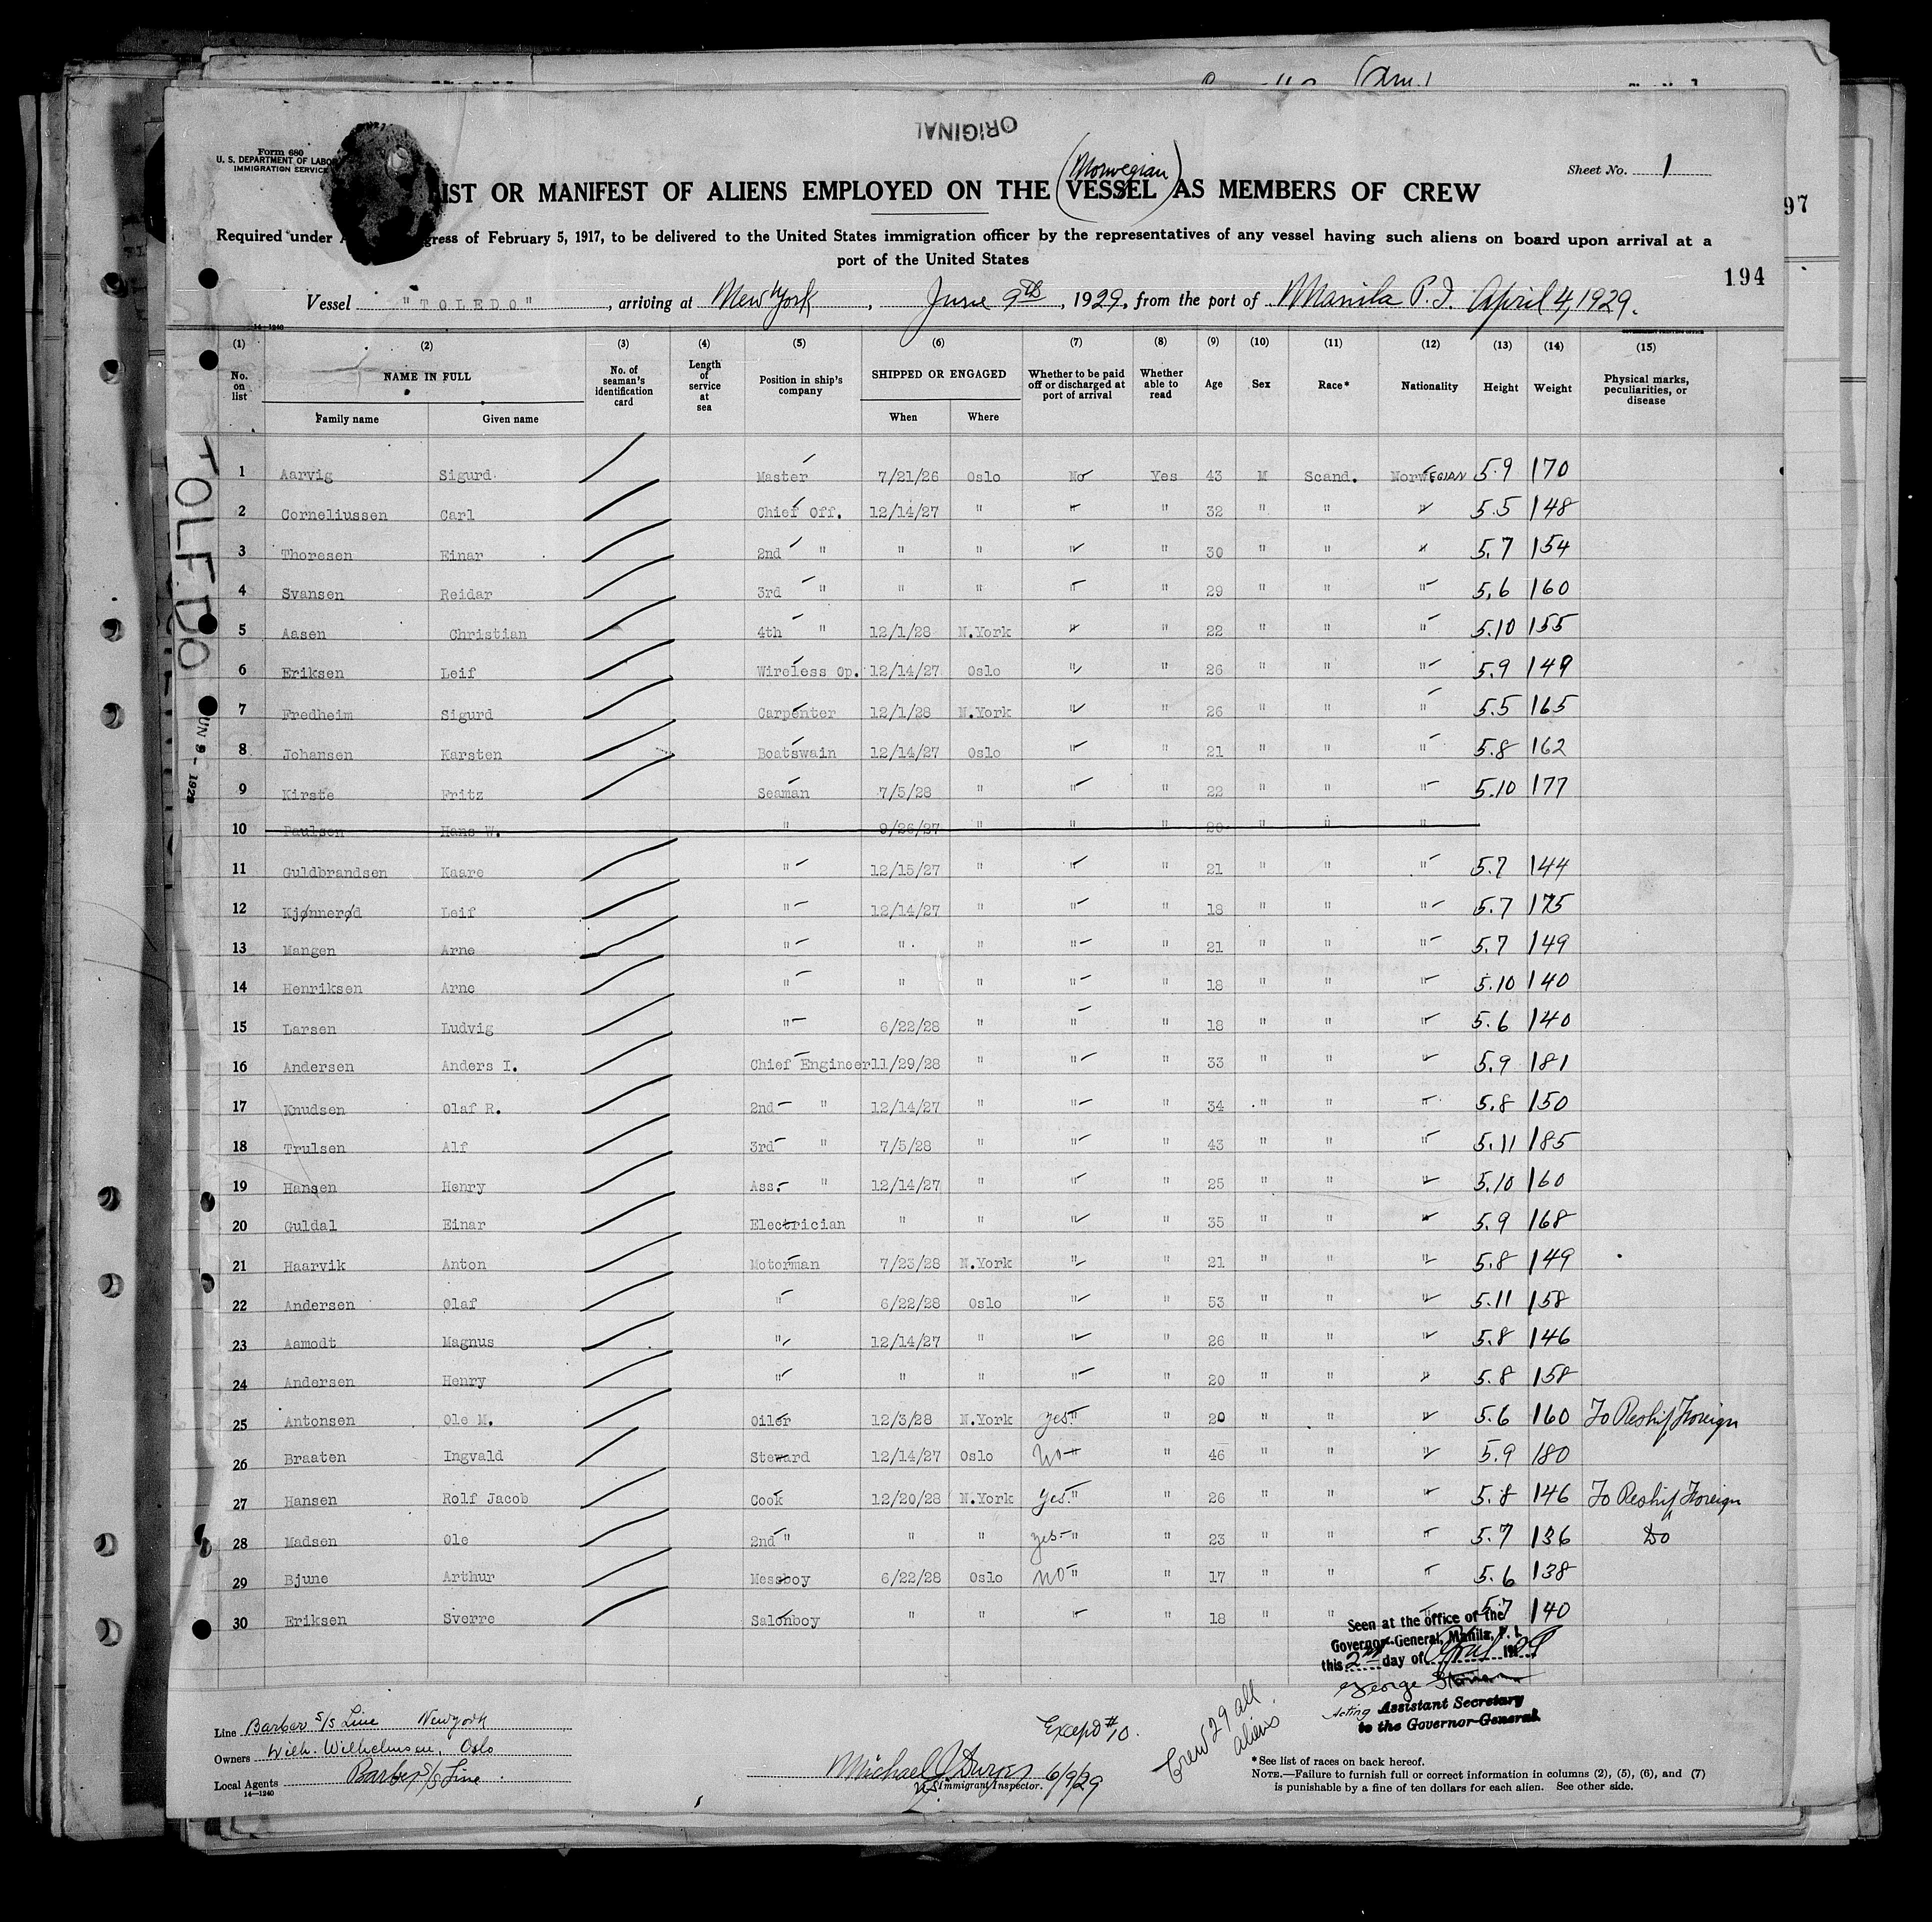 (Am.)
97
ORIGINAL
Form 680
U. S. DEPARTMENT OF LABOR
IMMIGRATION SERVICE
Sheet No. 1
(Norwegian)
LIST OR MANIFEST OF ALIENS EMPLOYED ON THE VESSEL AS MEMBERS OF CREW
Required under gress of February 5, 1917, to be delivered to the United States immigration officer by the representatives of any vessel having such aliens on board upon arrival at a
port of the United States
194
Vessel "TOLEDO", arriving at New York, June 9th, 1929, from the port of Manila P.I. April 4, 1929.
14—1240
GOVERNMENT PRINTING OFFICE
(1) (2) (3) (4) (5) (6) (7) (8) (9) (10) (11) (12) (13) (14) (15)
No. on list NAME IN FULL No. of seaman's identification card Length of service at sea Position in ship's company SHIPPED OR ENGAGED Whether to be paid off or discharged at port of arrival Whether able to read Age Sex Race* Nationality Height Weight Physical marks, peculiarities, or disease
Family name Given name When Where
1 Aarvig Sigurd Master 7/21/26 Oslo No Yes 43 M Scand. NorwEGIAN 5.9 170
2 Corneliussen Carl Chief Off. 12/14/27 " " " 32 " " " 5.5 148
3 Thoresen Einar 2nd " " " " " 30 " " " 5.7 154
4 Svansen Reidar 3rd " " " " " 29 " " " 5.6 160
5 Aasen Christian 4th " 12/1/28 N.York " " 22 " " " 5.10 155
6 Eriksen Leif Wireless Op. 12/14/27 Oslo " " 26 " " " 5.9 149
7 Fredheim Sigurd Carpenter 12/1/28 N.York " " 26 " " " 5.5 165
8 Johansen Karsten Boatswain 12/14/27 Oslo " " 21 " " " 5.8 162
9 Kirste Fritz Seaman 7/5/28 " " " 22 " " " 5.10 177
10 Paulsen Hans W. " 9/26/27 " " " 20 " " "
11 Guldbrandsen Kaare " 12/15/27 " " " 21 " " " 5.7 144
12 Kjønnerød Leif " 12/14/27 " " " 18 " " " 5.7 175
13 Mangen Arne " " " " " 21 " " " 5.7 149
14 Henriksen Arne " " " " " 18 " " " 5.10 140
15 Larsen Ludvig " 6/22/28 " " " 18 " " " 5.6 140
16 Andersen Anders I. Chief Engineer 11/29/28 " " " 33 " " " 5.9 181
17 Knudsen Olaf R. 2nd " 12/14/27 " " " 34 " " " 5.8 150
18 Trulsen Alf 3rd " 7/5/28 " " " 43 " " " 5.11 185
19 Hansen Henry Ass. " 12/14/27 " " " 25 " " " 5.10 160
20 Guldal Einar Electrician " " " " 35 " " " 5.9 168
21 Haarvik Anton Motorman 7/23/28 N.York " " 21 " " " 5.8 149
22 Andersen Olaf " 6/22/28 Oslo " " 53 " " " 5.11 158
23 Aamodt Magnus " 12/14/27 " " " 26 " " " 5.8 146
24 Andersen Henry " " " " " 20 " " " 5.8 158
25 Antonsen Ole M. Oiler 12/3/28 N.York yes " " 20 " " " 5.6 160 To Reship Foreign
26 Braaten Ingvald Steward 12/14/27 Oslo No " " 46 " " " 5.9 180
27 Hansen Rolf Jacob Cook 12/20/28 N.York yes " " 26 " " " 5.8 146 To Reship Foreign
28 Madsen Ole 2nd " " " yes " " 23 " " " 5.7 136 Do
29 Bjune Arthur Messboy 6/22/28 Oslo no " " 17 " " " 5.6 138
30 Eriksen Sverre Salonboy " " " " 18 " " " 5.7 140
TOLEDO
JUN 9 - 1929
Seen at the office of the
Governor-General, Manila, P. I.
this 2nd day of April 1929
George
Acting Assistant Secretary
to the Governor-General.
Line Barber S/S Line New York
Owners Wilh. Wilhelmsen, Oslo
Local Agents Barber S/S Line
14—1240
Except #10.
Crew 29 all
aliens
Michael J.
U.S. Immigrant Inspector. 6/9/29
*See list of races on back hereof.
NOTE.—Failure to furnish full or correct information in columns (2), (5), (6), and (7)
is punishable by a fine of ten dollars for each alien. See other side.